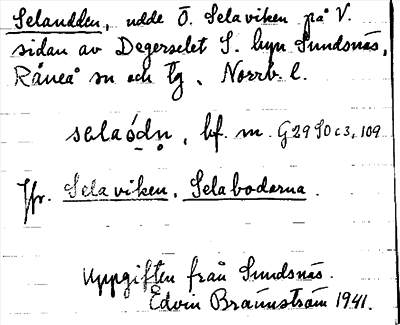 Selaudden, udde Ö. Selaviken på V.
sidan av Degerselet S. byn Sundsnäs,
Råneå sn och tg, Norrb. l.
selaódn, bf. m. G2930c3,109
Jfr. Selaviken, Selabodarna.
Uppgiften från Sundsnäs.
Edvin Brännström 1941.